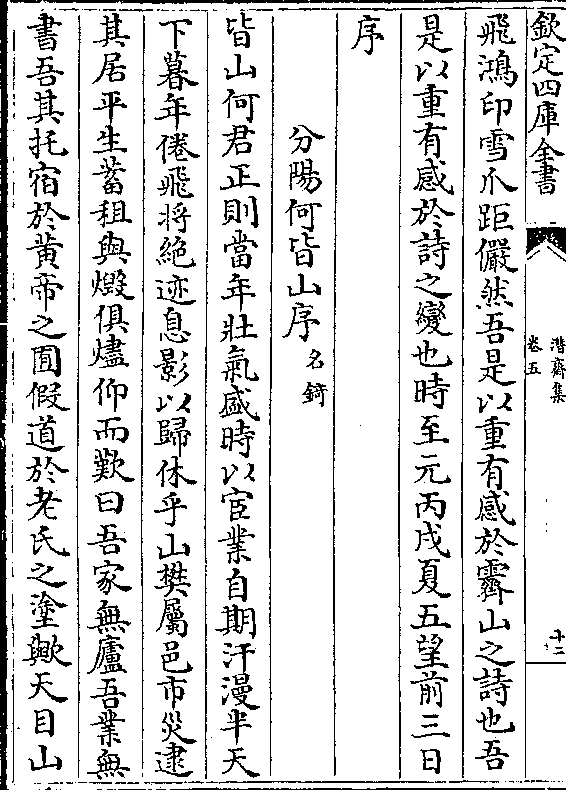 欽定四庫全書
潛齋集
卷五
十二
飛鴻印雪爪距儼然吾是以重有感於霽山之詩也吾
是以重有感於詩之變也時至元丙戌夏五望前三日
序
分陽何皆山序名錡
皆山何君正則當年壯氣盛時以宦業自期汗漫半天
下暮年倦飛將絶迹息影以歸休乎山樊屬邑市災逮
其居平生蓄租與燬俱燼仰而歎曰吾家無廬吾業無
書吾其托宿於黃帝之圃假道於老氏之塗歟天目山